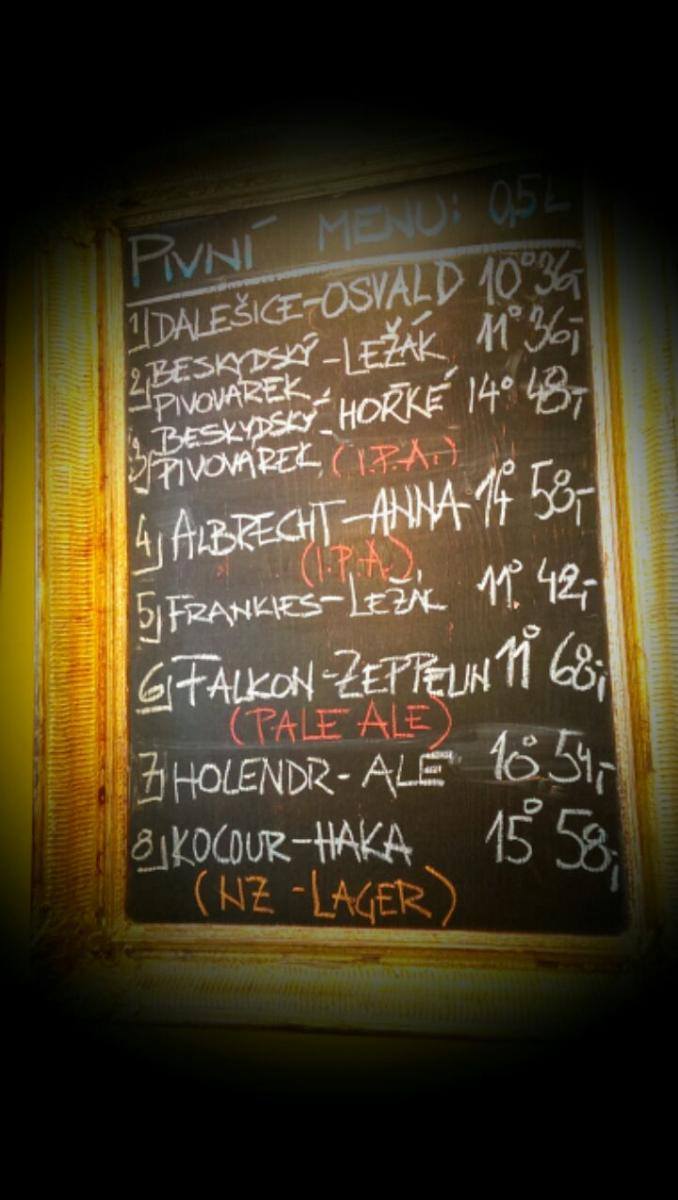 PIVNÍ MENU: 0,5L
1) DALEŠICE-OSVALD 10° 36,-
2) BESKYDSKÝ PIVOVÁREK -LEŽÁK 11° 36,-
3) BESKYDSKÝ PIVOVÁREK -HOŘKÉ 14° 48,-
(I.P.A.)
4) ALBRECHT-ANNA 14° 58,-
(I.P.A.)
5) FRANKIES-LEŽÁK 11° 42,-
6) FALKON-ZEPPELIN 11° 68,-
(PALE ALE)
7) HOLENDR-ALE 10° 54,-
8) KOCOUR-HAKA 15° 58,-
(NZ-LAGER)